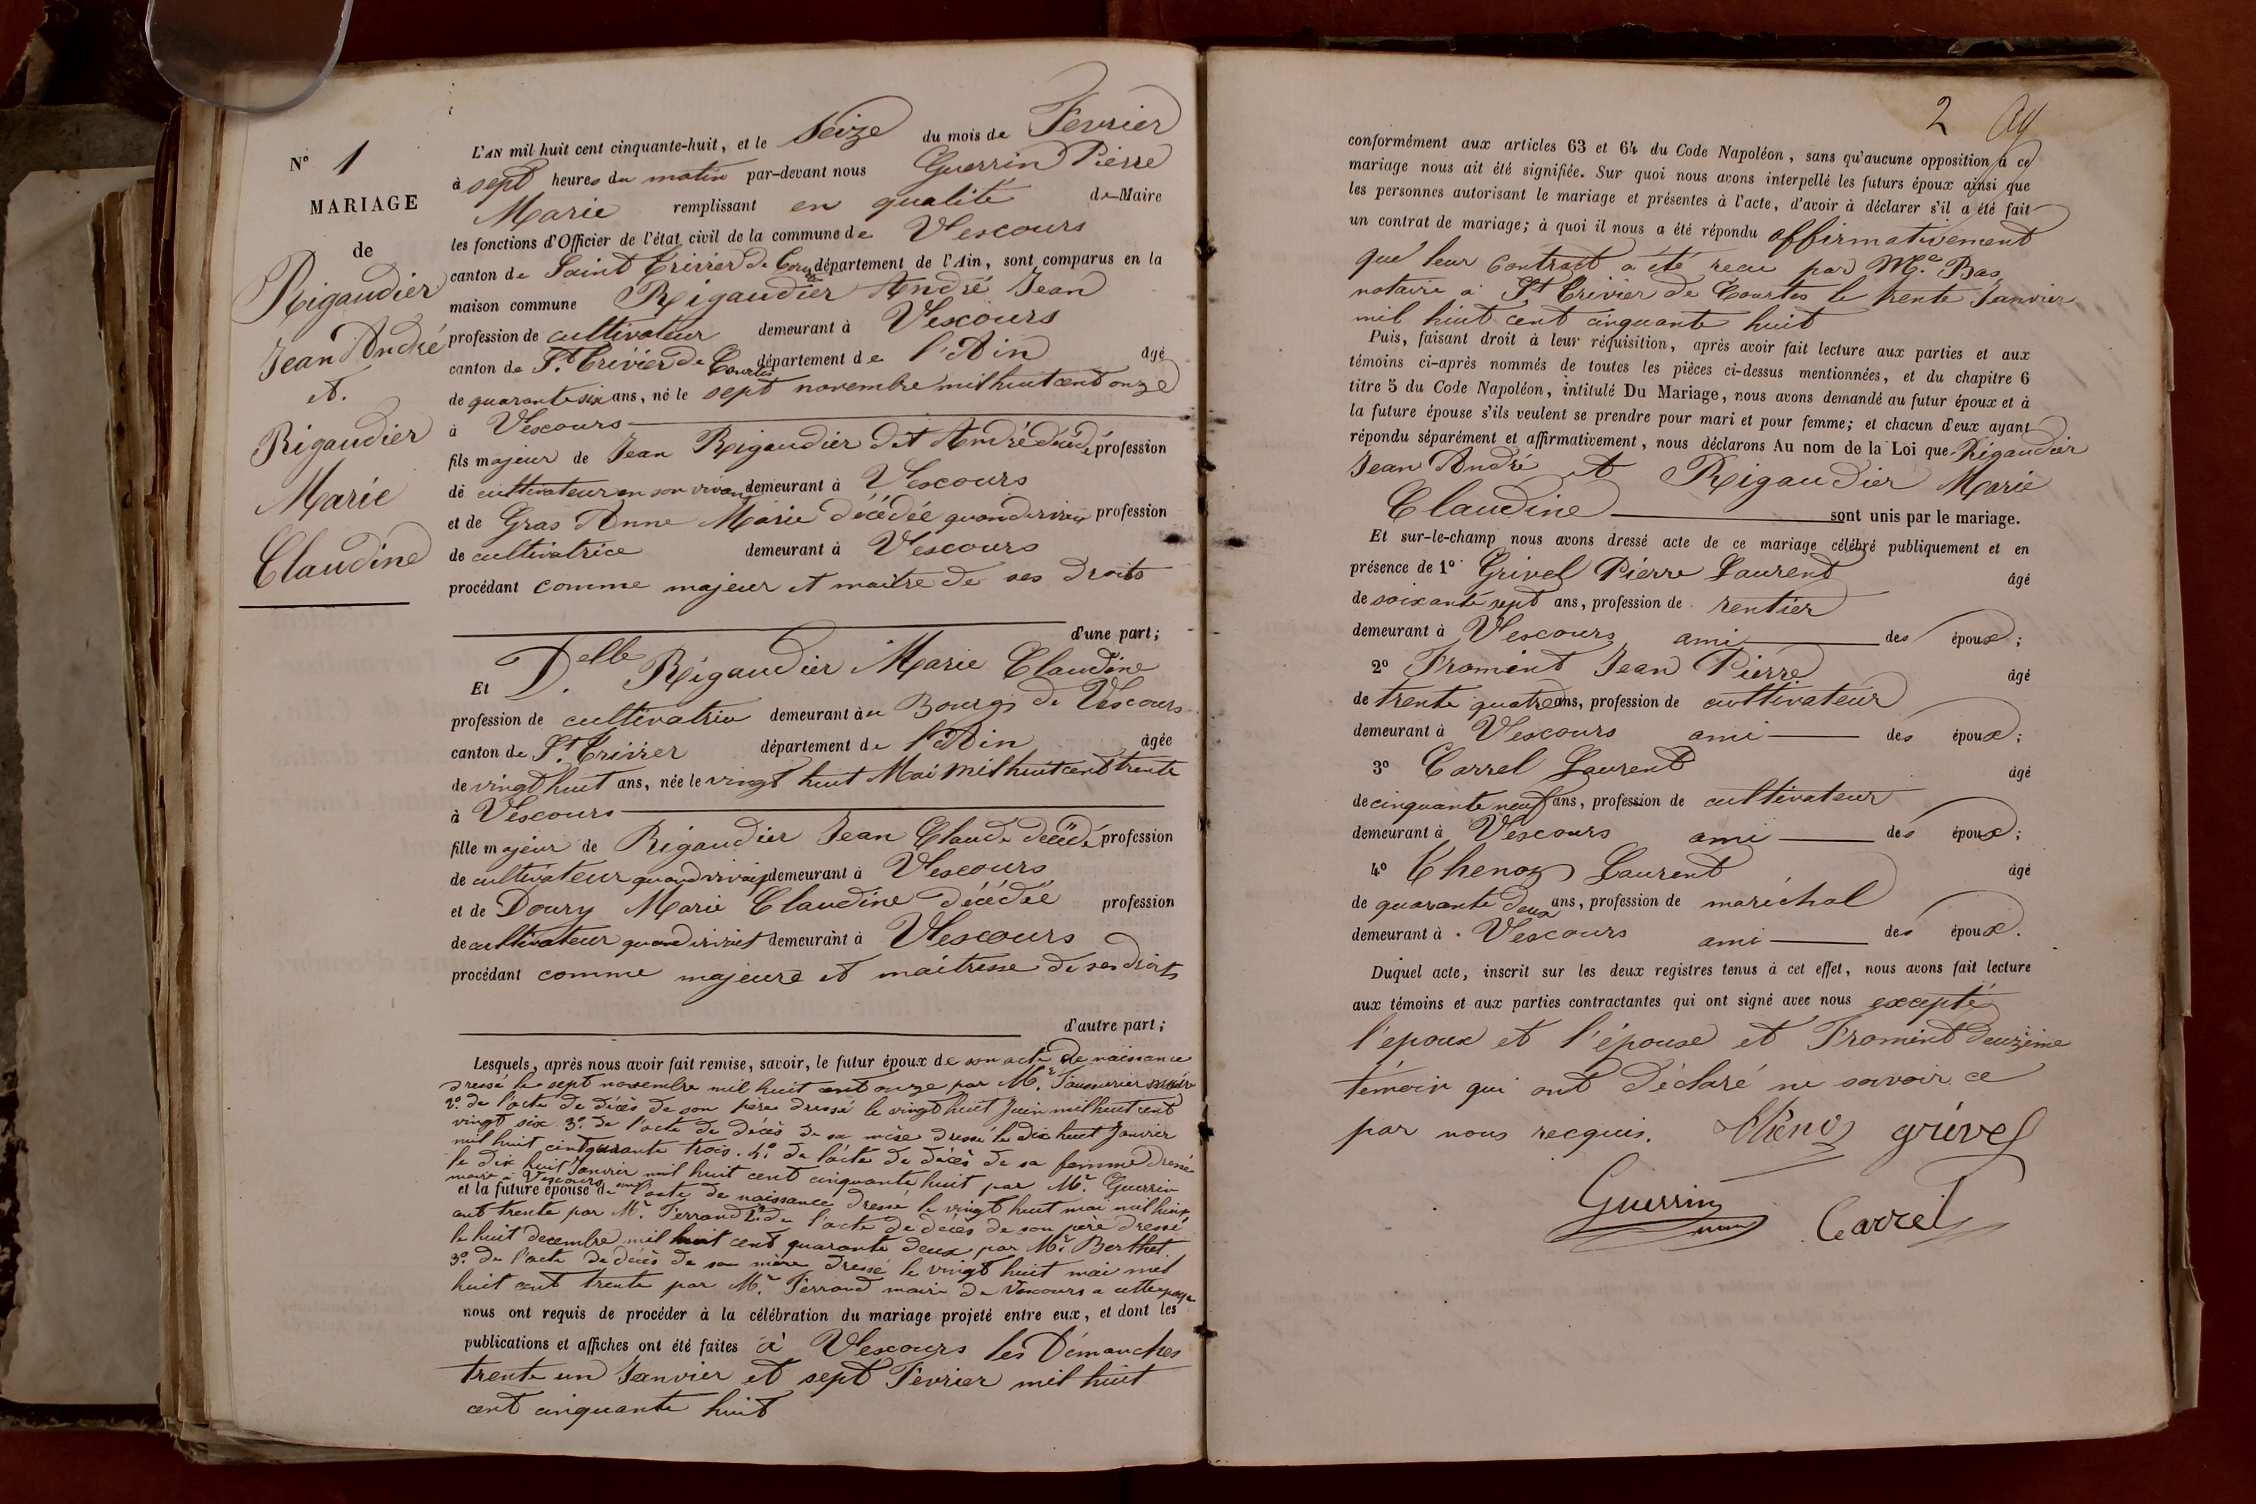 N° 1
MARIAGE
de
Rigaudier
Jean André
et.
Rigaudier
Marie
Claudine
L'AN mil huit cent cinquante-huit, et le Seize du mois de Fevrier
à sept heures du matin par-devant nous Guerrin Pierre
Marie remplissant en qualité de Maire
les fonctions d'Officier de l'état civil de la commune de Vescours
canton de Saint Trivier de Courtes département de l'Ain, sont comparus en la
maison commune Rigaudier André Jean
profession de cultivateur demeurant à Vescours
canton de St. Trivier de Courtes département de l'Ain âgé
de quarante six ans, né le sept novembre mil huit cent onze
à Vescours
fils majeur de Jean Rigaudier dit André décédé profession
de cultivateur en son vivant demeurant à Vescours
et de Gras Anne Marie décédée quand vivait profession
de cultivatrice demeurant à Vescours
procédant comme majeur et maitre de ses droits
d'une part;
Et Delle. Rigaudier Marie Claudine
profession de cultivatrice demeurant àu Bourg de Vescours
canton de St. Trivier département de l'Ain âgée
de vingt huit ans, née le vingt huit Mai mil huit cent trente
à Vescours
fille majeur de Rigaudier Jean Claude décédé profession
de cultivateur quand vivait demeurant à Vescours
et de Doury Marie Claudine décédée profession
de cultivateur quand vivait demeurant à Vescours
procédant comme majeure et maitresse de ses droits
d'autre part;
Lesquels, après nous avoir fait remise, savoir, le futur époux de son acte de naissance
dressé le sept novembre mil huit cent onze par Mr.
2°. de l'acte de décès de son père dressé le vingt huit Juin mil huit cent
vingt six 3°. de l'acte de décès de sa mère dressé le dix huit Janvier
mil huit cent quarante trois. 4° de l'acte de décès de sa femme dressé
le dix huit Janvier mil huit cent cinquante huit par Mr. Guerrin
maire à Vescours
et la future épouse de l'acte de naissance dressé le vingt huit mai mil huit
cent trente par Mr. Ferrand 2° de l'acte de décès de son père dressé
le huit decembre mil huit cent quarante deux par Mr. Berthet.
3°. de l'acte de décès de sa mère dressé le vingt huit mai mil
huit cent trente par Mr. Ferrand maire de Vescours a cette
nous ont requis de procéder à la célébration du mariage projeté entre eux, et dont les
publications et affiches ont été faites à Vescours les Démanches
trente un Janvier et sept Fevrier mil huit
cent cinquante huit
2
conformément aux articles 63 et 64 du Code Napoléon, sans qu'aucune opposition à ce
mariage nous ait été signifiée. Sur quoi nous avons interpellé les futurs époux ainsi que
les personnes autorisant le mariage et présentes à l'acte, d'avoir à déclarer s'il a été fait
un contrat de mariage; à quoi il nous a été répondu affirmativement
que leur Contract a été recu par Me. Bas
notaire à St Trivier de Courtes le trente Janvier
mil huit cent cinquante huit
Puis, faisant droit à leur réquisition, après avoir fait lecture aux parties et aux
témoins ci-après nommés de toutes les pièces ci-dessus mentionnées, et du chapitre 6
titre 5 du Code Napoléon, intitulé Du Mariage, nous avons demandé au futur époux et à
la future épouse s'ils veulent se prendre pour mari et pour femme; et chacun d'eux ayant
répondu séparément et affirmativement, nous déclarons Au nom de la Loi que Rigaudier
Jean André et Rigaudier Marie
Claudine sont unis par le mariage.
Et sur-le-champ nous avons dressé acte de ce mariage célébré publiquement et en
présence de 1° Grivel Pierre Laurent âgé
de soixante sept ans, profession de rentier
demeurant à Vescours ami des époux;
2° Froment Jean Pierre âgé
de trente quatre ans, profession de cultivateur
demeurant à Vescours ami des époux;
3° Carrel Laurent âgé
de cinquante neuf ans, profession de cultivateur
demeurant à Vescours ami des époux;
4° Chenoz Laurent âgé
de quarante deux ans, profession de maréchal
demeurant à Vescours ami des époux.
Duquel acte, inscrit sur les deux registres tenus à cet effet, nous avons fait lecture
aux témoins et aux parties contractantes qui ont signé avec nous excepté
l'epoux et l'épouse et Froment deuzième
témoin qui ont déclaré ne savoir ce
par nous recquis. Chenoz grivel
Guerrin Carrel